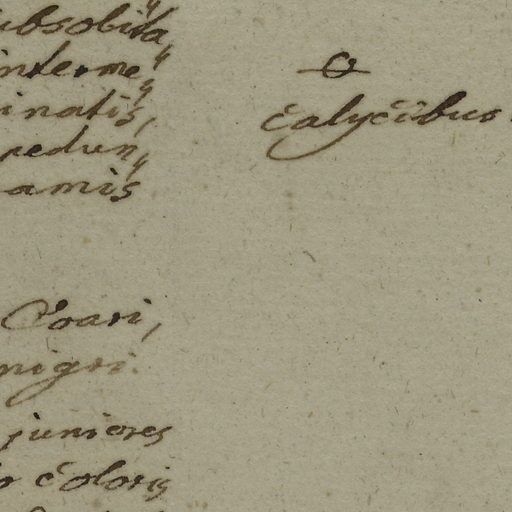 ubsolita„
interme„
inatis,
pedun„
amis
calycibus
Ovari,
nigri.
juniores
coloris